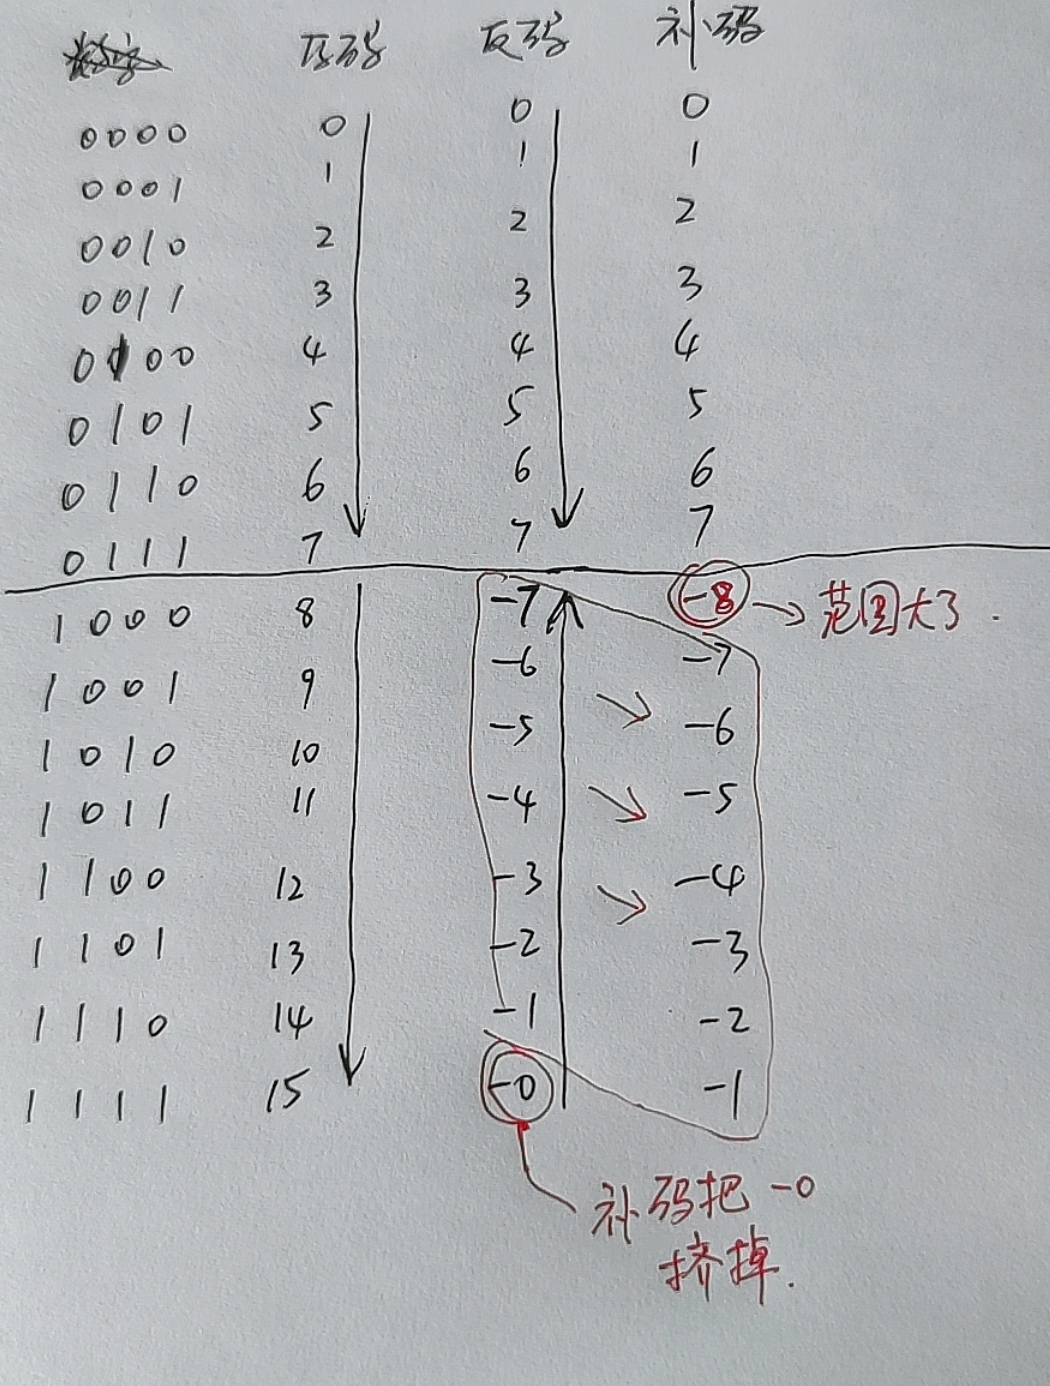 反码 补码
0000 0 0 0
0001 1 1 1
0010 2 2 2
0011 3 3 3
0100 4 4 4
0101 5 5 5
0110 6 6 6
0111 7 7 7
1000 8 -7 -8 → 范围大了.
1001 9 -6 -7
1010 10 -5 -6
1011 11 -4 -5
1100 12 -3 -4
1101 13 -2 -3
1110 14 -1 -2
1111 15 -0 -1
补码把 -0
挤掉.